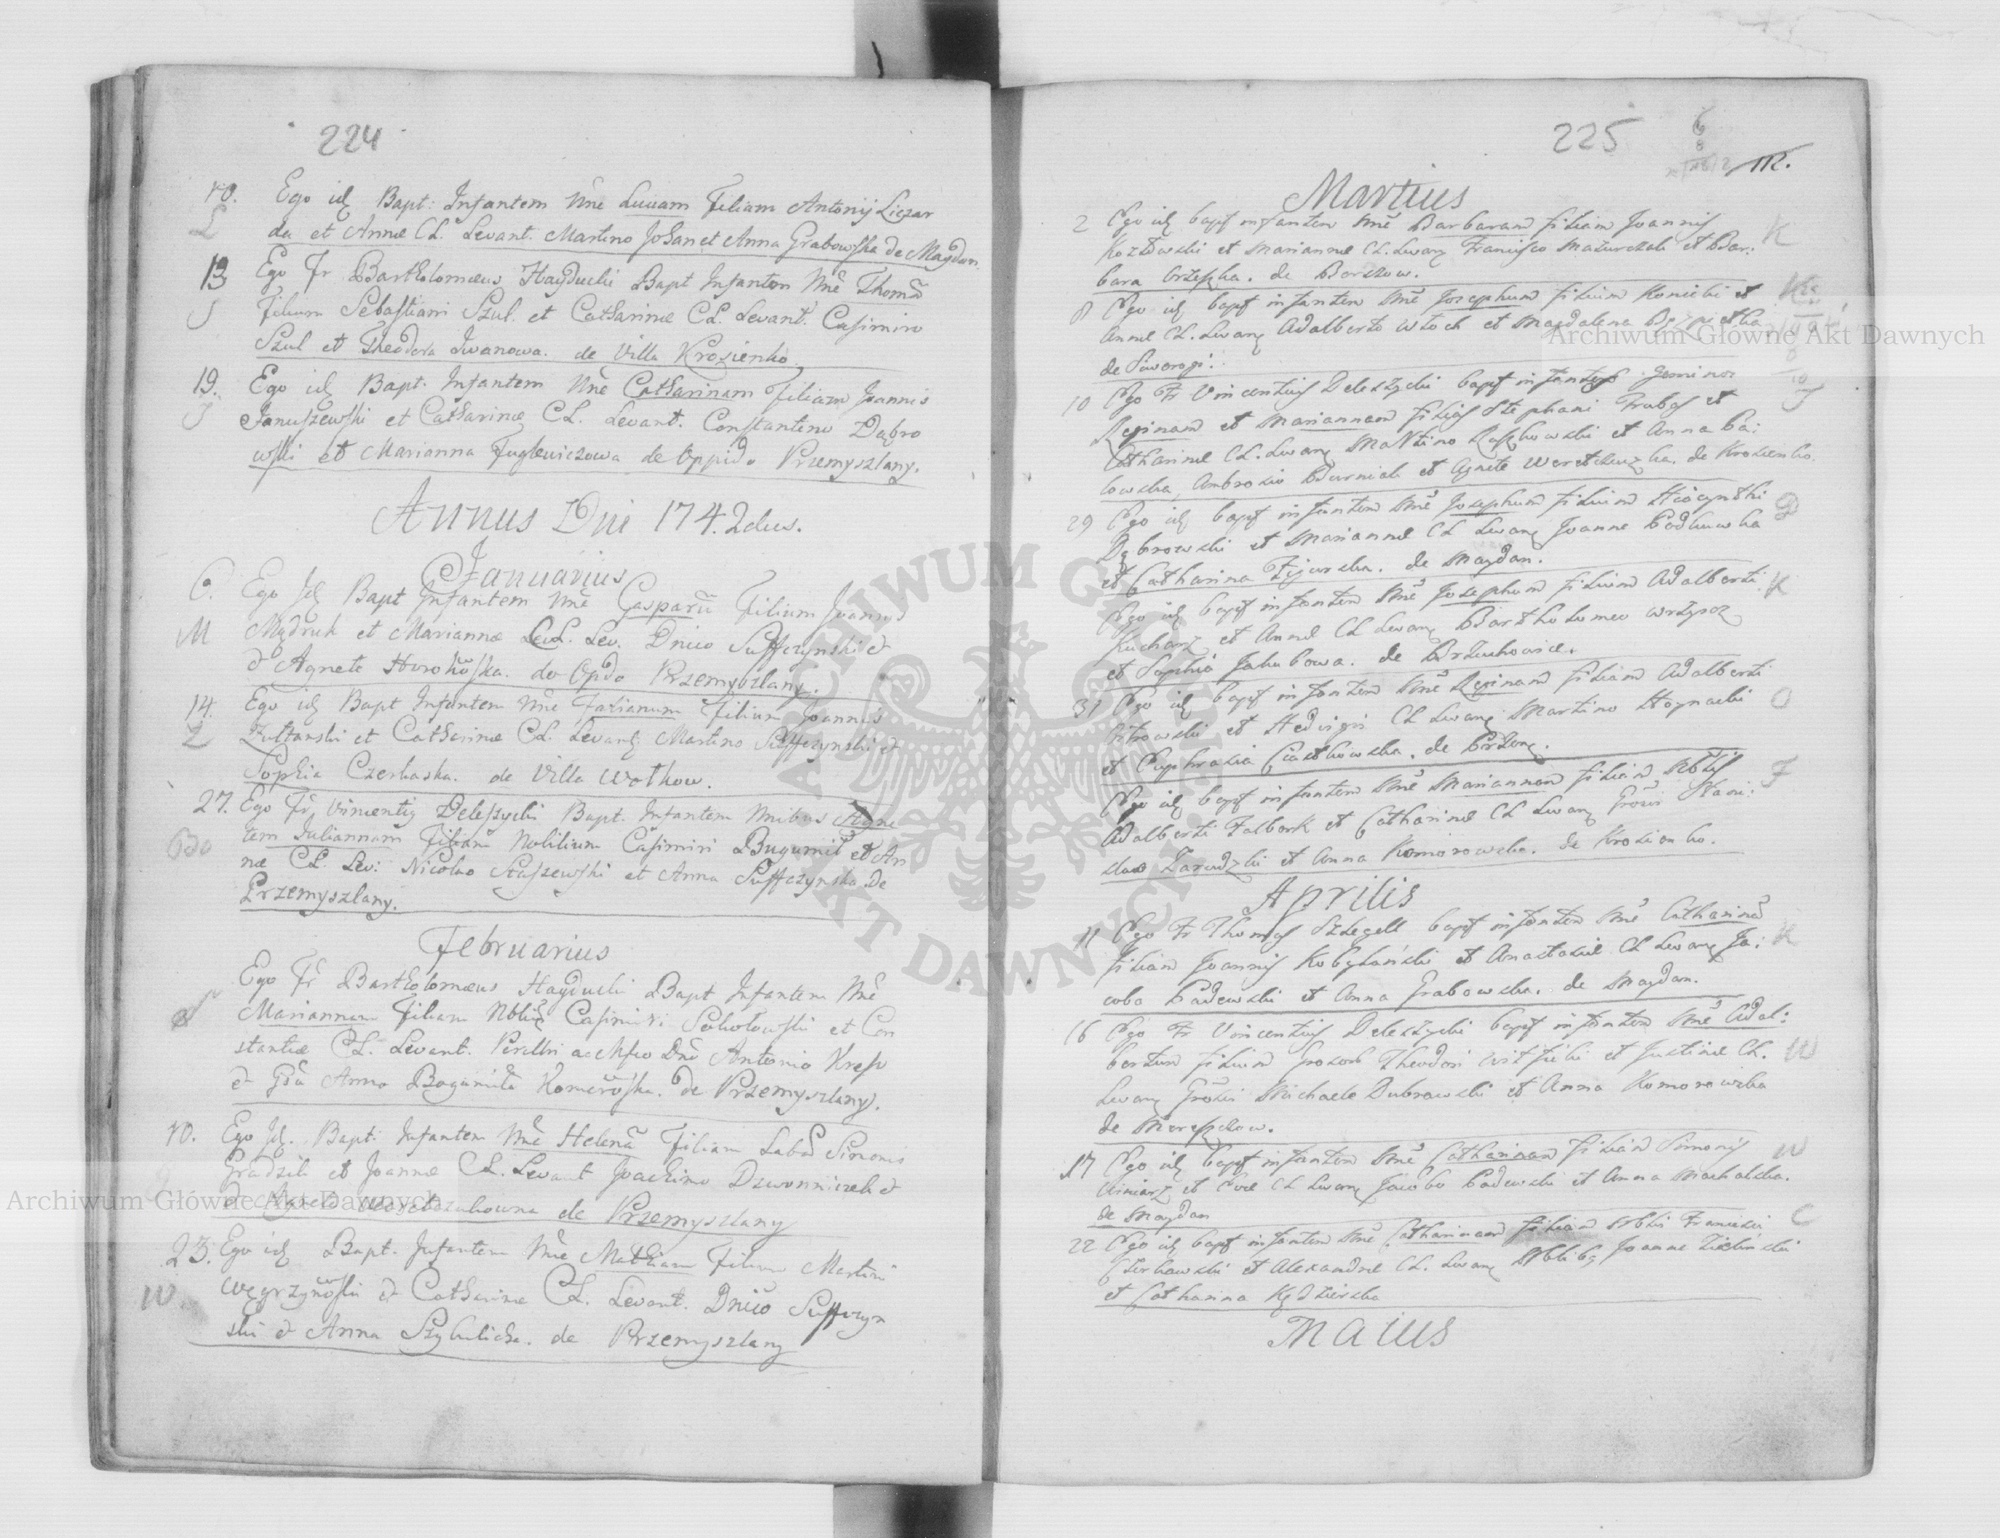 224
10. Ego id Bapt: Infantem Nne Luciam Filiam Antonij Liczar
da et Annæ CL. Levant. Martino Johan et Anna Grabowska de Maydan
L
13 Ego Fr Bartholomæus Hayducki Bapt Infantem Nne Thomā
Filium Sebastiani Szul. et Catharinæ CL. Levant. Casimiro
Szul et Theodora Iwanowa. de Villa Krosienko.
19. Ego id Bapt. Infantem Nne Catharinam Filiam Joannis
Januszewski et Catharinæ CL. Levant. Constantino Dąbro
wski et Marianna Fuglewiczowa de Oppido Przemyszlany.
Annus Dni 174.2dus.
Januarius
6. Ego Id Bapt Infantem Nne Casparū Filium Joannis
M
Mądruk et Mariannæ Lev. Dnico Suffczynski et
et Agnete Horohoska. de Opdo Przemyszlany.
14. Ego id Bapt Infantem Nne Fabianum Filium Joannis
Z
Zultanski et Catharinæ CL. Levant. Martino Suffczynski et
Sophia Czerkaska. de Villa Wołkow.
27. Ego Fr Vincentig Deleszycki Bapt. Infantem Nnibus Agne
Bo
tem Juliannam Filiam Nobilium Casimiri Bugumił et An
næ CL. Lev: Nicolao Staszewski et Anna Suffczynska De
Przemyszlany.
Februarius
Ego Fr Bartholomæus Hayducki Bapt Infantem Nne
Mariannam Filiam Casimiri Sokołowski et Con
stantiæ CL. Levant. Antonio
et Anna Bogumiła Komorowska. de Przemyszlany.
10. Ego Id. Bapt: Infantem Nne Helenā Filiam Simonis
Gradzik et Joannæ CL. Levant Joachimo Dzwonniczek et
et Agnete de Przemyszlany
23. Ego id Bapt. Infantem Nne Mathiam Filium Martini
W.
Węgrzynoski et Catharinæ CL. Levant. Dnico Suffczyn
ski et Anna de Przemyszlany
225
112.
Martius
2 Ego id bapt infantem Nne Barbaram filiam Joannis
K
Kozłowski et Mariannæ CL. Levang Francisco Mazurczak et Bar:
bara Orzeszka. de Borszow.
8 Ego id bapt infantem Nne Josephum filium Konicki et
Annæ CL. Levang Adalberto Włoch et Magdalena
de Siworogi.
10 Ego Fr Vincentius Deleszycki bapt infantes geminos
Reginam et Mariannam filias Stephani Trubas et
Catharinæ CL. Levang Martino Raszkowski et Anna Ba:
lowska, Ambrosio Burniak et Agnete Weretczuzka. de Krosienko.
29 Ego id bapt infantem Nne Josephum filium Hiacynthi
D
Dąbrowski et Mariannæ CL Levang Joanne Podhuwka
et Catharina Zyjewska. de Maydan.
Ego id bapt infantem Nne Josephum filium Adalberti
K
Kucharz et Annæ CL Levang Bartholomeo Wrzyscz
et Sophia Jakubowa. de Brzuchowice.
31 Ego id bapt infantem Nne Reginam filiam Adalberti
O
Ostrowski et Hedvigis CL Levang Martino Hoynacki
et Euphrasia Ciastkowska. de
Ego id bapt infantem Nne Mariannam filiam
F
Adalberti Falbork et Catharinæ CL Levang Stani:
slao Zarudzki et Anna Komorowska. de Krosienko.
Aprilis
11 Ego Fr Thomas Szlegell bapt infantem Nne Catharinā
K
filiam Joannis Kobylański et Anastasiæ CL Levang Ja:
cobo Padewski et Anna Grabowska. de Maydan.
16 Ego Fr Vincentius Deleszycki bapt infantem Nne Adal:
W
bertum filium Theodori Witficki et Justinæ CL.
Levang Michaele Dubrawski et Anna Komorowska
de Mereszczow.
17 Ego id bapt infantem Nne Catharinam filiam Simonis
W
Winiarz et Evæ CL Levang Jacobo Padewski et Anna Machalska.
de Maydan
22 Ego id bapt infantem Nne Catharinam filiam Francisci
C
Czerkowski et Alexandræ CL. Levang Joanne Zieliński
et Catharina Kędzierska
Maius
ARCHIWUM GŁÓWNE AKT DAWNYCH
Archiwum Główne Akt Dawnych
Archiwum Główne Akt Dawnych